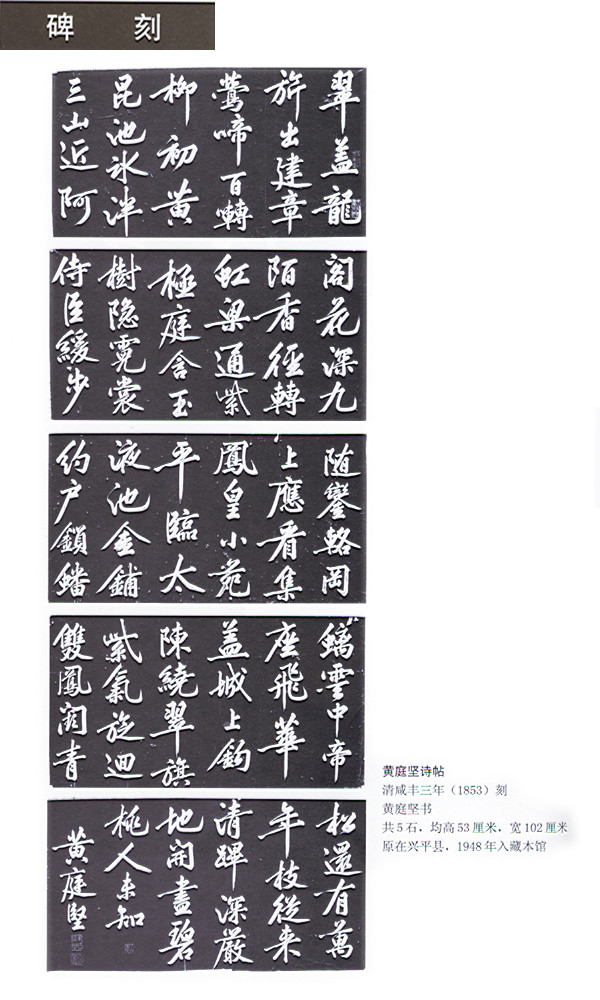 碑 刻
翠盖龍
旂出建章
鶯啼百轉
柳初黄
昆池氷泮
三山近阿
阁花深九
陌香徑轉
虹梁通紫
極庭含玉
樹隐霓裳
侍臣緩步
随鑾輅岡
上應看集
鳳皇小苑
平臨太
液池金鋪
约户鎖蟠
螭雲中帝
座飛華
盖城上鈎
陳繞翠旗
紫氣旋迴
雙鳳闕青
松還有萬
年枝從来
清蹕深嚴
地開盡碧
桃人未知
黄庭堅
黄庭坚诗帖
清咸丰三年（1853）刻
黄庭坚书
共5石，均高53厘米，宽102厘米
原在兴平县，1948年入藏本馆